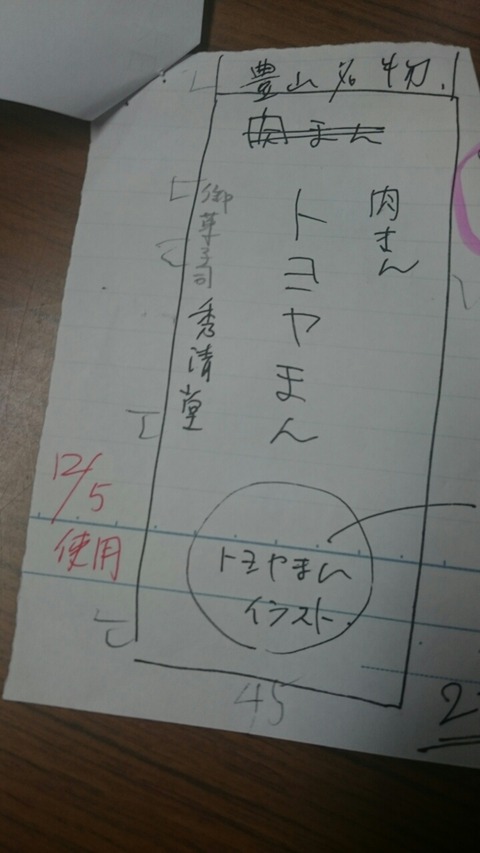 豊山名物
肉まん
肉まん
トヨヤまん
御菓子司 秀清堂
12/5
使用
トヨやまん
イラスト
45
2